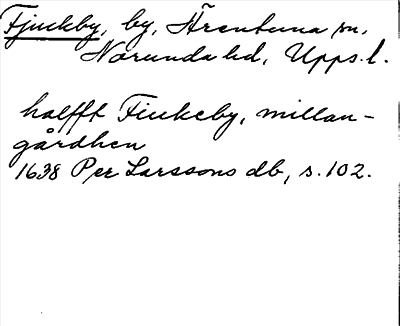 Fjuckby, by, Ärentuna sn,
Norunda hd, Upps. l.
halfft Fiukeby, millan-
gårdhen
1638 Per Larssons db, s. 102.